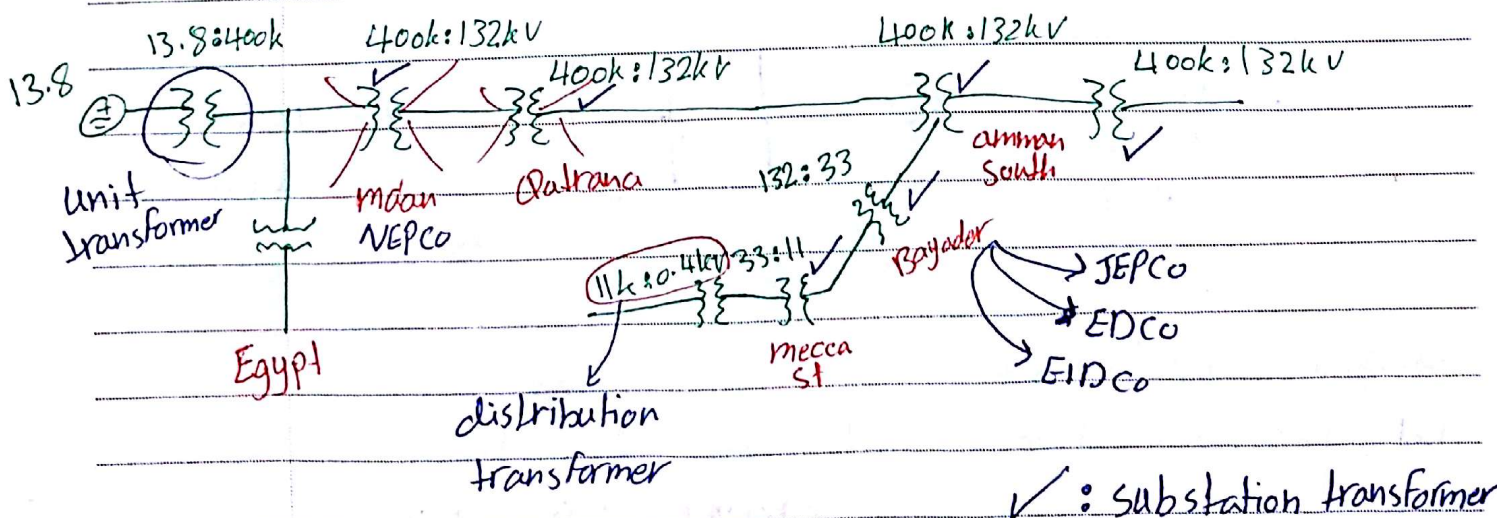 13.8:400k
400k:132kV
400k:132kV
400k:132kV
400k:132kV
13.8
unit
transformer
maan
NEPCo
Qatrana
amman
South
132:33
Bayader
JEPCo
EDCo
EIDCo
11k:0.4kv
33:11
mecca
st
Egypt
distribution
transformer
✓ : substation transformer